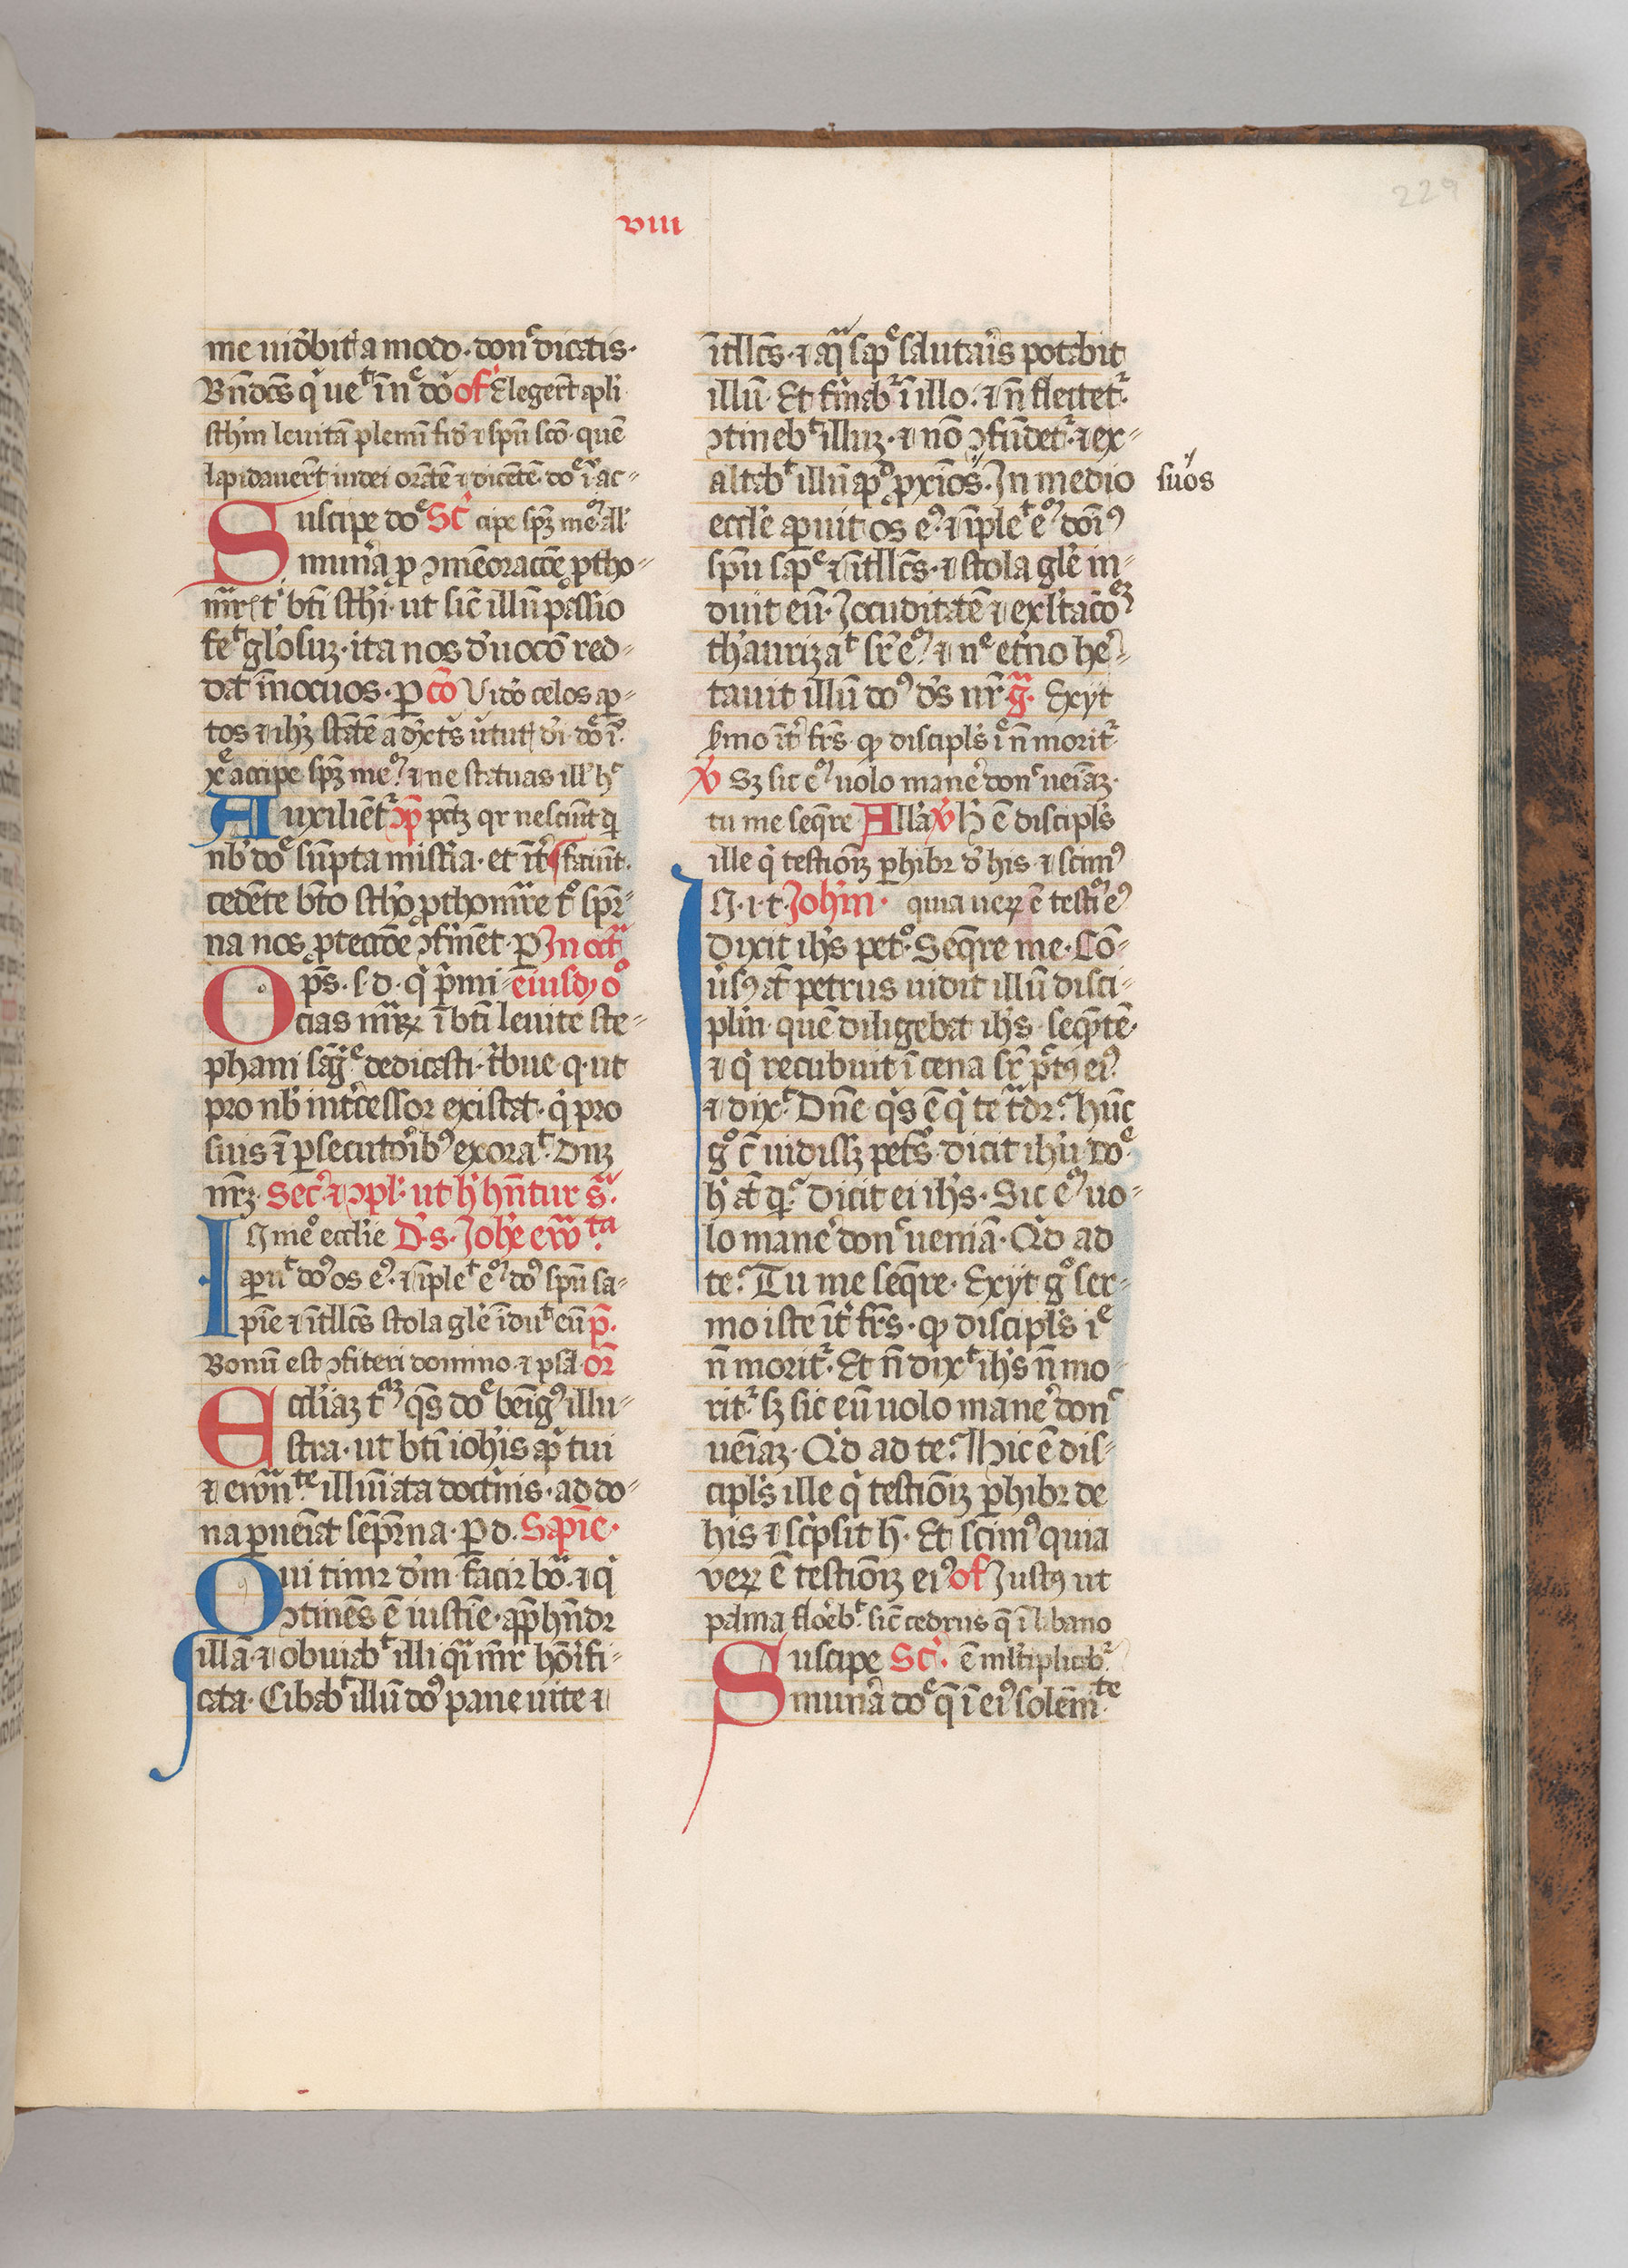 229
viii
me uidebitis a modo. donec dicatis.
Bn̄dc̄s q̇ ueᵗ in noīe dō of Elegert̄ apl̄i
sthm̄ leuitā plenū fid̄ ⁊ spū scō. quē
lapidauert̄ iudei orātē ⁊ dicētē. do͛ ih̄u ac-
Suscipe dn͛e Sc̄ cipe spm̄ meū all͛
munā p ꝯmēoracōe p̄tho-
mr̄is tⁱ bt̄i sthi. ut sic̄ illū passio
fecᵗ gl͛osuz. ita nos d͛uocō red-
dat īnocuos. p cō Uid͛o celos ap-
tos ⁊ ih̄z stātē a dext͛s ut͛tutꝭ d͛i. do͛ i͛.
xe͛ accipe spm̄ meū ⁊ ne statuas ill͛ hᶜ
Auxiliēt͛ ꝯp̄ pct̄z qr nesciūt qͥ
nb̄ do͛ sūpta mist͛ia. et īt͛ faciūt.
cedēte bt̄o stho p̄thomr̄e t° sp̄r-
na nos p̄teccōe ꝯfirmēt. p In oct͛a
Op̄s. s. d. q̇ p̄mi- eiusdꝫ o°
cias mr̄ꝝ ī bt̄i leuite ste-
phani sāgᵉ dedicasti. t͛bue. q. ut
pro nb̄ int͛cessor existat. q̇ pro
suis ī persecutoribꝰ exoraᵗ. dnꝫ
nr̄ꝫ. Sec͛. ⁊ ꝯpl. ut h͛ hn̄tur s͛.
In me° eccl͛ie D. s. Joh͛e ewᵗᵃ
apūᵗ do͛ os eꝰ. ⁊ īpleᵗ eū do͛ spū sa-
pīe ⁊ ītllc̄s stola gl͛e īduᵗ eū p̄.
Bonū est ꝯfiteri domino. ⁊ psal. or̄
Eccl͛iaz tuā q̄s do͛ beīgꝰ illu-
stra. ut bt̄i ioh͛is ap̄ tui
⁊ ewn̄ᵗᵉ illuīata doct͛nis. ad do-
na puēiat sēp̄rna. p d. Sapīe.
Qui timꝛ dm̄ faciꝛ bo͛. ⁊ q̇
ꝯtinēs ē iustīe. app̄hn̄dꝛ
illā. ⁊ obuiabᵗ illi qͣ m̄r hōifi-
cata. Cibabᵗ illū do͛ pane uite ⁊
ītllc̄s. ⁊ aqͣ sapᵉ salutaris potabit
illū. Et firmabͬ ī illo. ⁊ n̄ flectetͬ.
ꝯtinebᵗ illuz. ⁊ nō ꝯfūdetͬ. ⁊ ex-
altabᵗ illū ap͛ p̄xīos. In medio
suos
eccl͛e apuit os eꝰ. ⁊ īpleᵗ eū dōī͛
spū sapᵉ ⁊ ītllc̄s. ⁊ stola gl͛e in-
duit eū. Jocuditatē ⁊ exl͛tacōeꝫ
thaurizaᵗ sr̄ eū ⁊ nᵉ et͛no he͛-
tauit illū do͛ d͛s nr̄ g͛. Exyt
s͛mo īt͛ fr̄s. ꝙ discipl͛s iᵉ n̄ moritͬ.
℣ Sz sic eū uolo mane͛ donᶜ ueīaz.
tu me seq̄re All͛a ℣ h̄ ē discipl͛s
ille q̇ testiōꝫ phibꝛ d͛ his. ⁊ scimꝰ
S. i. t. Joh͛m. quia ueꝝ ē testīū eꝰ
Dixit ih͛s pet°. Seq̄re me. Cō-
u͛sꝰ aᵗ petrus uidit illū disci-
plīn. quē diligebat ih͛s. seq̄tē.
⁊ q̇ recubuit ī cena sr̄ pctꝰ eiꝰ
⁊ dix͛. Dn̄e q̇s ē q̇ te t͛dꝛ? Hūc
g° c̄ uidissꝫ pet͛s dicit ih͛u do͛.
h͛ aᵗ qͥ? dicit ei ih͛s. Sic eū uo-
lo mane͛ donᶜ ueniā. Qd ad
te? Tu me seq̄re. Exyt g° ser-
mo iste īt͛ fr̄s. ꝙ discipl͛s iᵉ
n̄ moritͬ. Et n̄ dixᵗ ih͛s n̄ mo-
ritͬ sꝫ sic eū uolo mane͛ donᶜ
ueīaz. Qd ad te? Hic ē dis-
cipl͛s ille q̇ testiōꝫ phibꝛ de
his ⁊ sc͛psit h̄. Et scimꝰ quia
veꝝ ē testiōꝫ eiꝰ of Justꝰ ut
palma flo͛ebᵗ. sic̄ cedrus q̄ ī libano
Suscipe Sc͛. ē ml͛tiplicabͬ.
muna do͛ q̄ ī eiꝰ solēmᵗᵉ